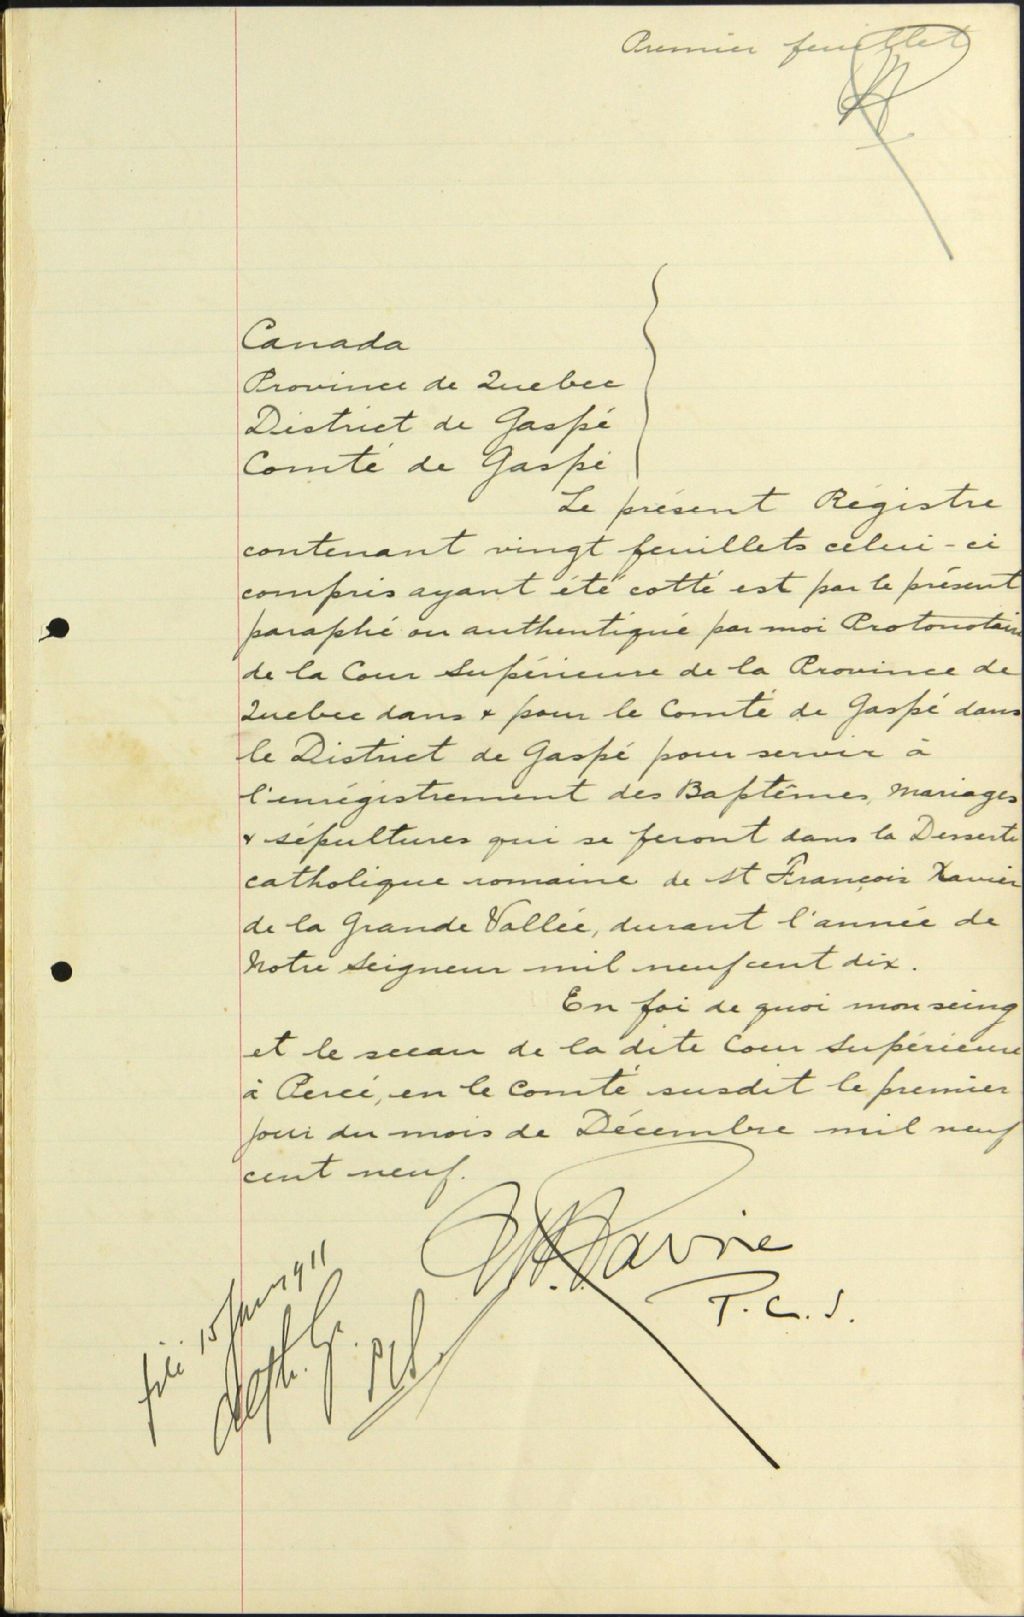 Premier feuillet
Canada
Province de Quebec
District de Gaspé
Comté de Gaspé
Le présent Régistre
contenant vingt feuillets celui-ci
compris ayant été cotté est par le présent
paraphé ou authentiqué par moi Protonotaire
de la Cour Supérieure de la Province de
Quebec dans & pour le Comté de Gaspé dans
le District de Gaspé pour servir à
l'enrégistrement des Baptêmes, Mariages
& sépultures qui se feront dans la Desserte
catholique romaine de St François Xavier
de la Grande Vallée, durant l'année de
Notre Seigneur mil neuf cent dix.
En foi de quoi mon seing
et le sceau de la dite Cour Supérieure
à Percé, en le Comté susdit le premier
jour du mois de Décembre mil neuf
cent neuf.
P.C.S.
filé 15 Janv 1911
PCS